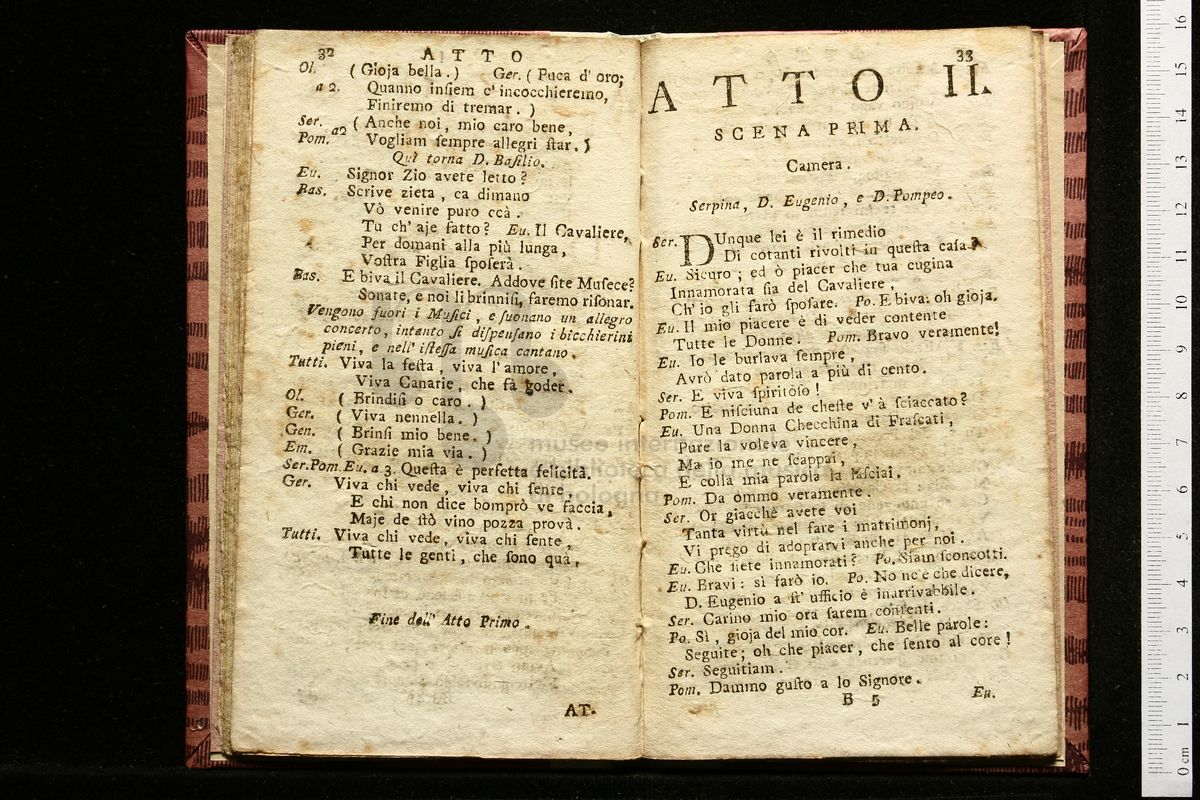 32 ATTO
Ol. (Gioja bella.) Ger. (Puca d' oro;
a 2. Quanno inſiem c' incocchieremo,
Finiremo di tremar. )
Ser. a2 ( Anche noi, mio caro bene,
Pom. Vogliam ſempre allegri ſtar. )
Quì torna D. Baſilio.
Eu. Signor Zio avete letto?
Bas. Scrive zieta, ca dimano
Vò venire puro ccà.
Tu ch' aje fatto? Eu. Il Cavaliere,
Per domani alla più lunga,
Voſtra Figlia ſpoſerà.
Bas. E biva il Cavaliere. Addove ſite Muſece?
Sonate, e noi li brinniſi, faremo riſonar.
Vengono fuori i Muſici, e ſuonano un allegro
concerto, intanto ſi diſpenſano i bicchierini
pieni, e nell' iſteſſa muſica cantano.
Tutti. Viva la feſta, viva l' amore,
Viva Canarie, che fà goder.
Ol. ( Brindiſi o caro. )
Ger. ( Viva nennella. )
Gen. ( Brinſi mio bene. )
Em. ( Grazie mia via. )
Ser.Pom.Eu. a 3. Queſta è perfetta felicità.
Ger. Viva chi vede, viva chi ſente,
E chi non dice bomprò ve faccia,
Maje de ſtò vino pozza provà.
Tutti. Viva chi vede, viva chi ſente,
Tutte le genti, che ſono quà,
Fine dell' Atto Primo.
AT-
33
ATTO II.
SCENA PRIMA.
Camera.
Serpina, D. Eugenio, e D. Pompeo.
Ser. DUnque lei è il rimedio
Di cotanti rivolti in queſta caſa?
Eu. Sicuro; ed ò piacer che tua cugina
Innamorata ſia del Cavaliere,
Ch' io gli farò ſpoſare. Po. E biva: oh gioja.
Eu. Il mio piacere è di veder contente
Tutte le Donne. Pom. Bravo veramente!
Eu. Io le burlava ſempre,
Avrò dato parola a più di cento.
Ser. E viva ſpiritòſo!
Pom. E niſciuna de cheſte v' à ſciaccato?
Eu. Una Donna Checchina di Fraſcati,
Pure la voleva vincere,
Ma io me ne ſcappai,
E colla mia parola la laſciai.
Pom. Da ommo veramente.
Ser. Or giacchè avete voi
Tanta virtù nel fare i matrimonj,
Vi prego di adoprarvi anche per noi.
Eu. Che ſiete innamorati? Po. Siam ſconcotti.
Eu. Bravi: sì farò io. Po. No nc'è che dicere,
D. Eugenio a ſt' ufficio è inarrivabbile.
Ser. Carino mio ora ſarem contenti.
Po. Sì, gioja del mio cor. Eu. Belle parole:
Seguite; oh che piacer, che ſento al core!
Ser. Seguitiam.
Pom. Dammo guſto a lo Signore.
B 5 Eu.
musee internazionale
e biblioteca della musica
di bologna
0 cm 1 2 3 4 5 6 7 8 9 10 11 12 13 14 15 16